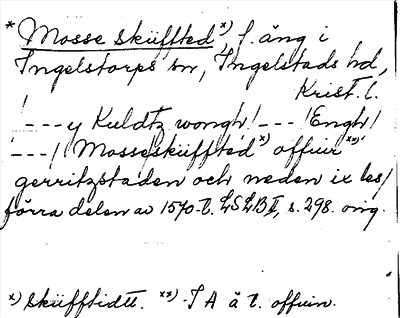 * Mosse skiiffted x) f. äng i
Ingelstorps sn, Ingelstads hd,
Krist. l.
!---y Kuldtz wongh!---!Engh!
!---! Mosseskiiffted x) offuir xx)
gerritzstaden och neden ix les/
förra delen av 1570-t. LSLB II, s. 298. orig.
x) skiifftidtt. xx) -J A ä t. offuin.